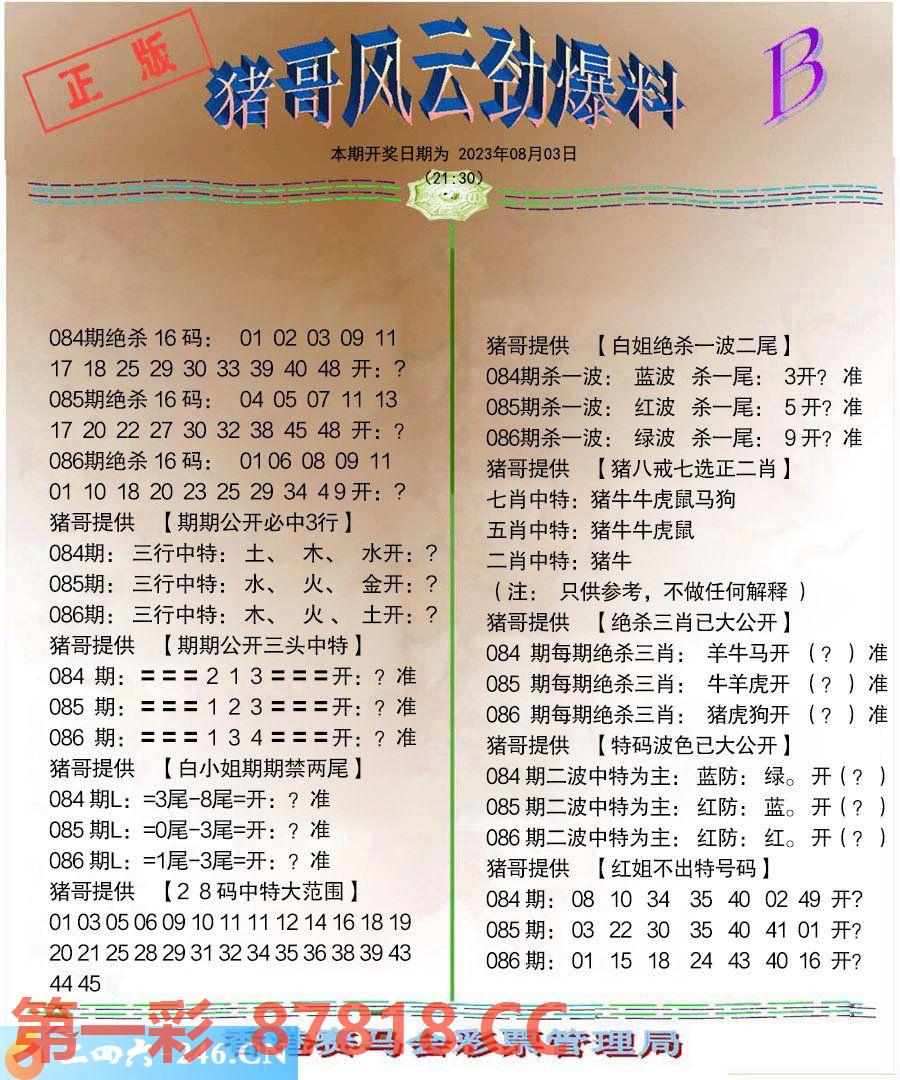 正版
猪哥风云劲爆料
B
本期开奖日期为 2023年08月03日
(21:30)
084期绝杀 16 码： 01 02 03 09 11
17 18 25 29 30 33 39 40 48 开：?
085期绝杀 16 码： 04 05 07 11 13
17 20 22 27 30 32 38 45 48 开：?
086期绝杀 16 码： 01 06 08 09 11
01 10 18 20 23 25 29 34 4 9 开：?
猪哥提供 【期期公开必中3行】
084期： 三行中特： 土、 木、 水开：?
085期： 三行中特： 水、 火、 金开：?
086期： 三行中特： 木、 火、土开：?
猪哥提供 【期期公开三头中特】
084 期：＝＝＝2 1 3＝＝＝开：? 准
085 期：＝＝＝1 2 3＝＝＝开：? 准
086 期：＝＝＝1 3 4＝＝＝开：? 准
猪哥提供 【白小姐期期禁两尾】
084 期L：=3尾-8尾=开：? 准
085 期L：=0尾-3尾=开：? 准
086 期L：=1尾-3尾=开：? 准
猪哥提供 【２８码中特大范围】
01 03 05 06 09 10 11 11 12 14 16 18 19
20 21 25 28 29 31 32 34 35 36 38 39 43
44 45
猪哥提供 【白姐绝杀一波二尾】
084期杀一波： 蓝波 杀一尾： 3开? 准
085期杀一波： 红波 杀一尾： 5 开? 准
086期杀一波： 绿波 杀一尾： 9 开? 准
猪哥提供 【猪八戒七选正二肖】
七肖中特：猪牛牛虎鼠马狗
五肖中特：猪牛牛虎鼠
二肖中特：猪牛
（注： 只供参考，不做任何解释 ）
猪哥提供 【绝杀三肖已大公开】
084 期每期绝杀三肖： 羊牛马开 （? ）准
085 期每期绝杀三肖： 牛羊虎开 （? ）准
086 期每期绝杀三肖： 猪虎狗开 （? ）准
猪哥提供 【特码波色已大公开】
084 期二波中特为主： 蓝防：绿。 开（? ）
085 期二波中特为主： 红防：蓝。 开（? ）
086 期二波中特为主： 红防：红。 开（? ）
猪哥提供 【红姐不出特号码】
084 期： 08 10 34 35 40 02 49 开?
085 期： 03 22 30 35 40 41 01 开?
086 期： 01 15 18 24 43 40 16 开?
第一彩 87818.CC
二四六 246.CN
香港赛马会彩票管理局